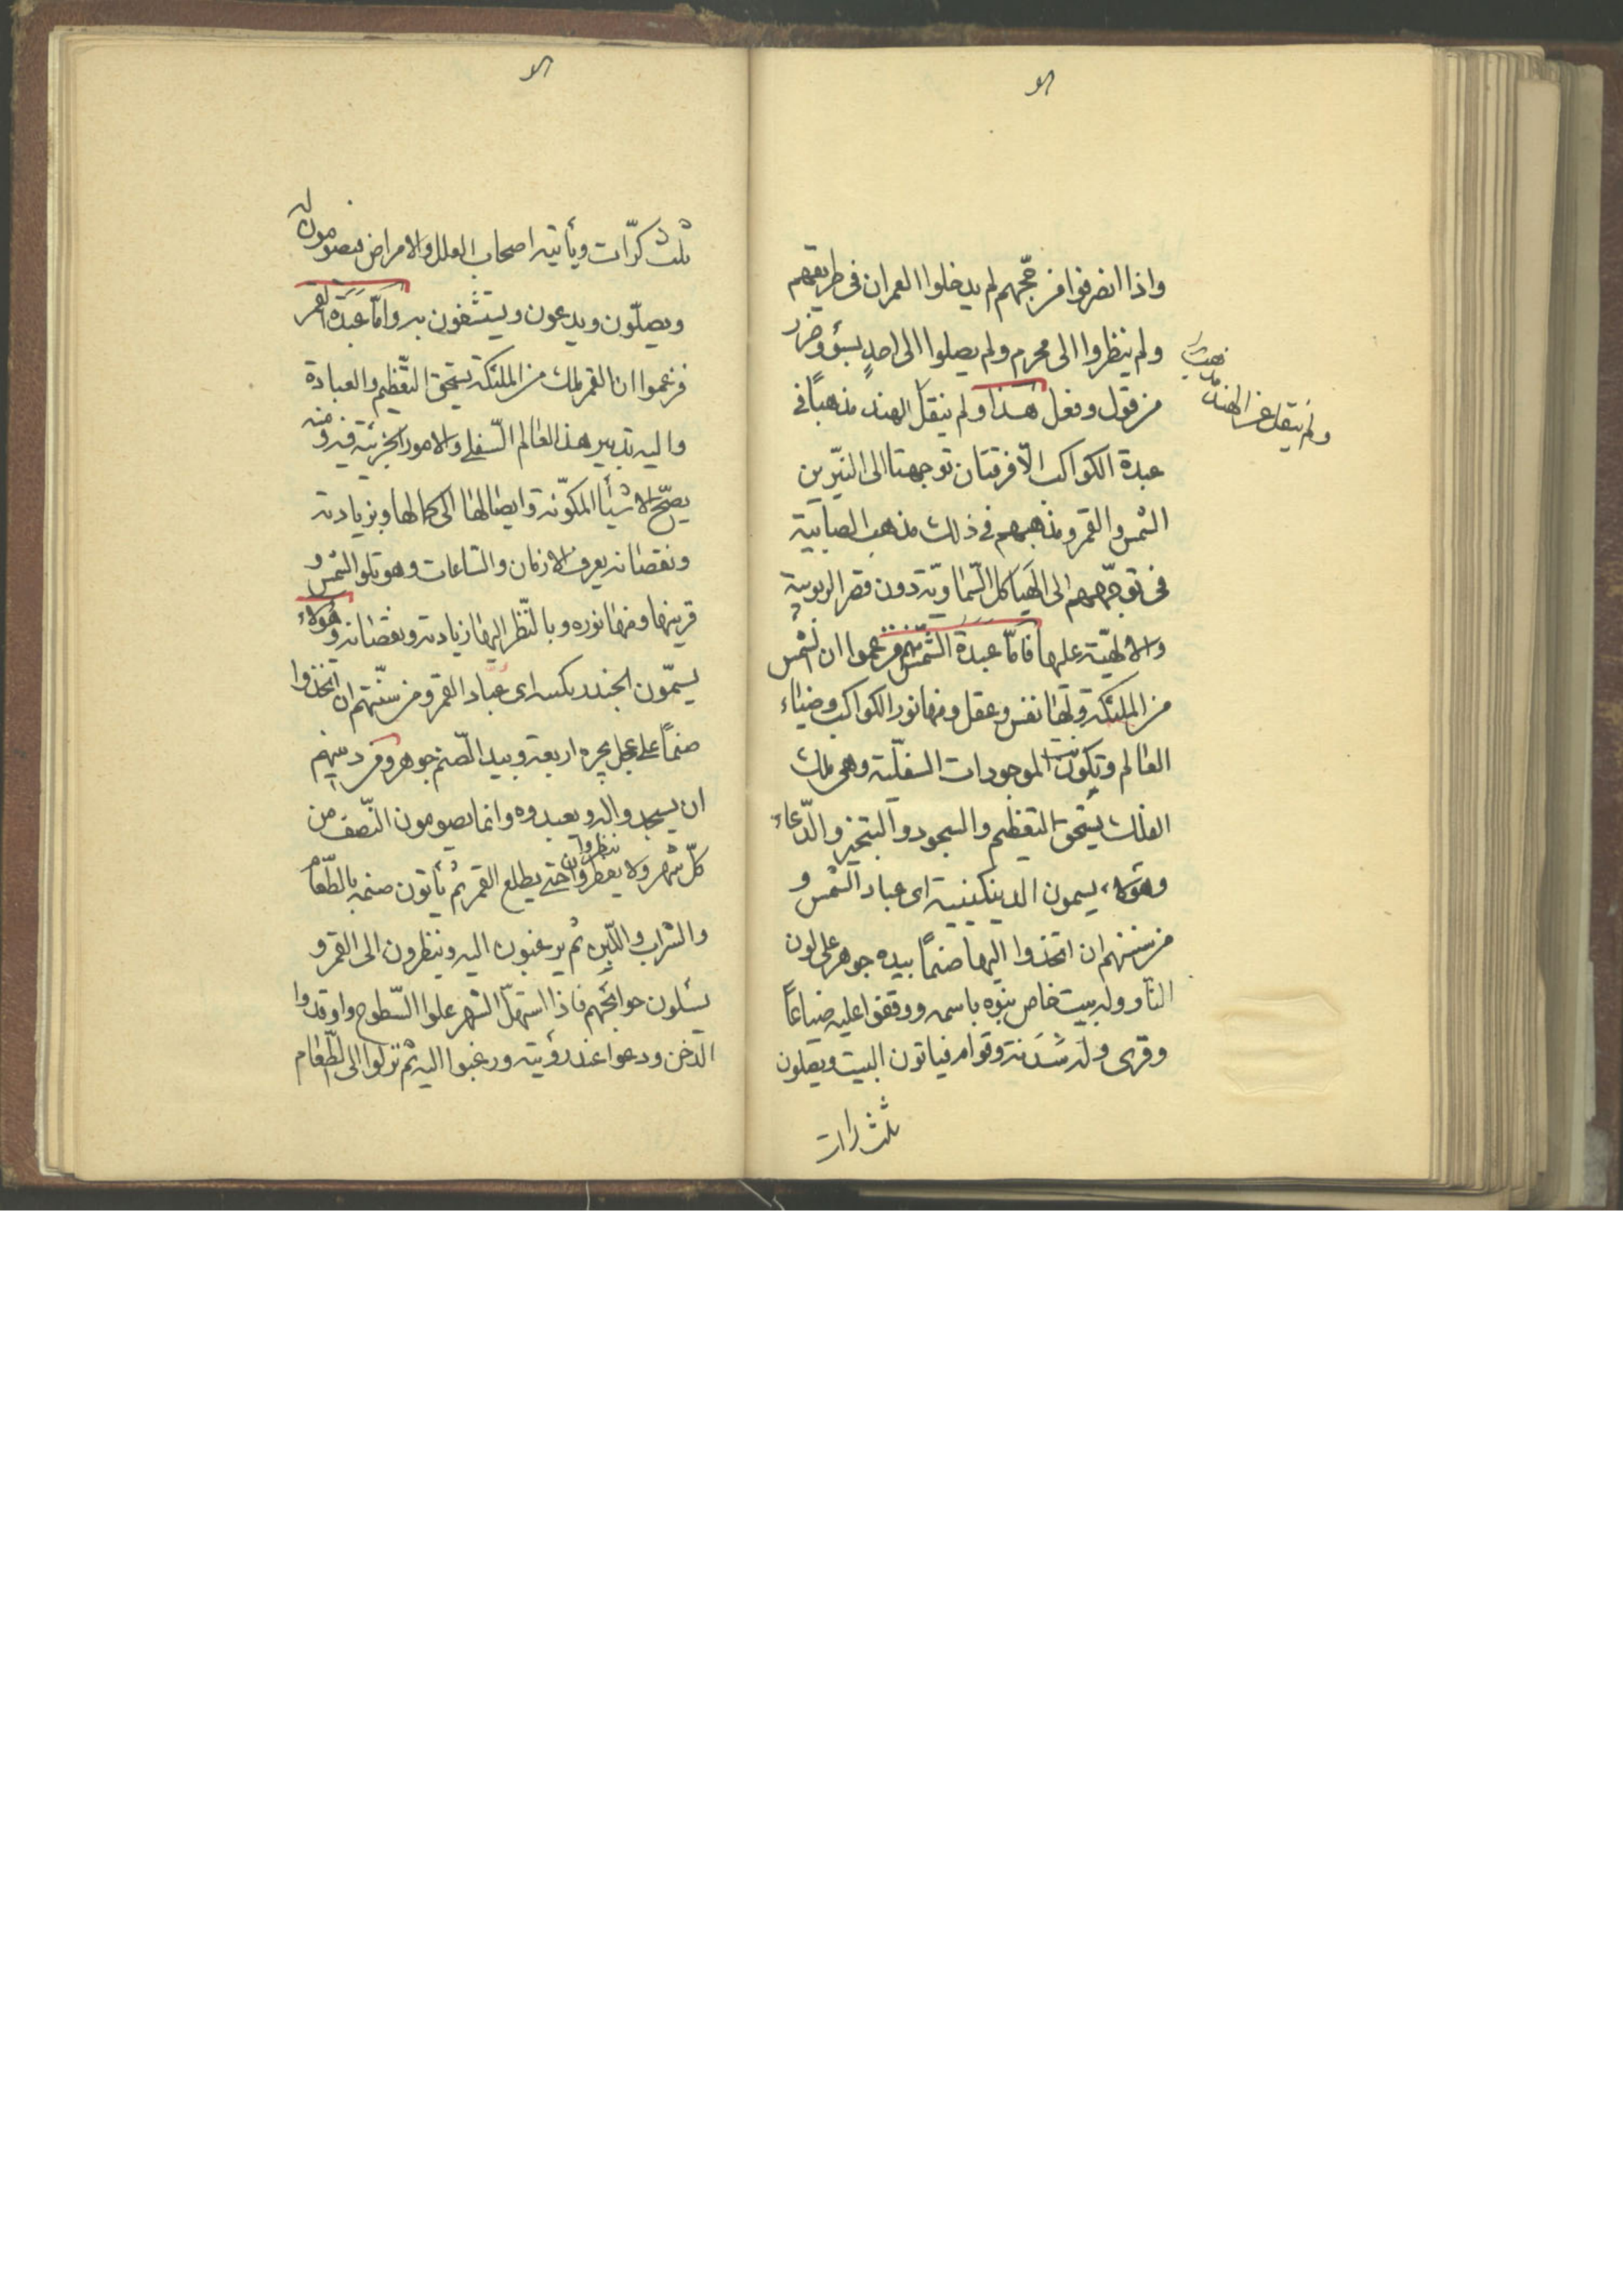 واذا انصرفوا من حجّهم لم يدخلوا العمران فى طريقهم
ولم ينظروا الى محرم ولم يصلوا الى احدٍ بسؤ وضرر
من قول وفعل هذا ولم ينقل الهند مذهباً فى
عبدة الكواكب الّا فرقتان توجهتا الى النيّرين
الشمس والقمر ومذهبهم فى ذلك مذهب الصابية
فى توجّههم الى الهياكل السّماويّة دون قصر الربوبية
والالهيّة عليها فامّا عبدة الشّمس فزعموا ان الشمس
من الملئكة ولها نفس وعقل ومنها نور الكواكب وضياء
العالم وتكون الموجودات السفليّة وهى ملك
الفلك يستحق التعظيم والسجود والتبخير والدّعاء
وهؤلاء يسمون الدينكينية اى عباد الشمس و
من سننهم ان اتخذوا اليها صنماً بيده جوهر على لون
النار وله بيت خاص بنوه باسمه ووقفوا عليه ضياعاً
وقرى وله سَدَنة وقوام فياتون البيت ويصلون
ثلث رات
ولم ينقل عن الهند
ثلث كرّات ويأتيه اصحاب العلل والامراض فيصومون له
ويصلّون ويدعون ويستشفون به وامّا عَبَدَة القمر
فزعموا ان القمر ملك من الملئكة يستحق التّعظيم والعبادة
واليه تدبير هذا العالم السّفلى والامور الجزئية فيه ومنه
يصحّ الاشيأ المكوّنة وايصالها الى كمالها وبزيادته
ونقصانه يعرف الازمان والساعات وهو تلو الشمس و
قرينها ومنها نوره وبالنّظر اليها زيادته ونقصانه وهؤلاء
يسمّون الجندريكسه اى عبّاد القمر ومن سنّتهم ان اتخذوا
صنماً على عجل يجره اربعة وبيد الصّنم جوهر ومن دينهم
ان يسجدوا له ويعبدوه وانما يصومون النّصف من
كلّ شهر ولا يفطروا حتى يطلع القمر ثم يأتون صنمه بالطّعام
والشراب واللّبن ثم يرغبون اليه وينظرون الى القمر و
يسئلون حوايجهم فاذا استهلّ الشهر علوا السّطوح واوقدوا
الدّخن ودعوا عند رؤيته ورغبوا اليه ثم نزلوا الى الطّعام